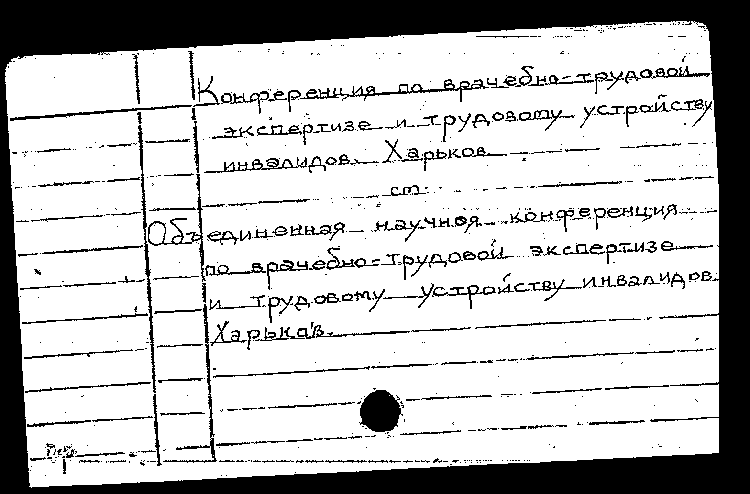 Конференция по врачебно-трудовой
экспертизе и трудовому устройству
инвалидов. Харьков
см.
Объединенная научная конференция
по врачебно-трудовой экспертизе
и трудовому устройству инвалидов.
Харьков.